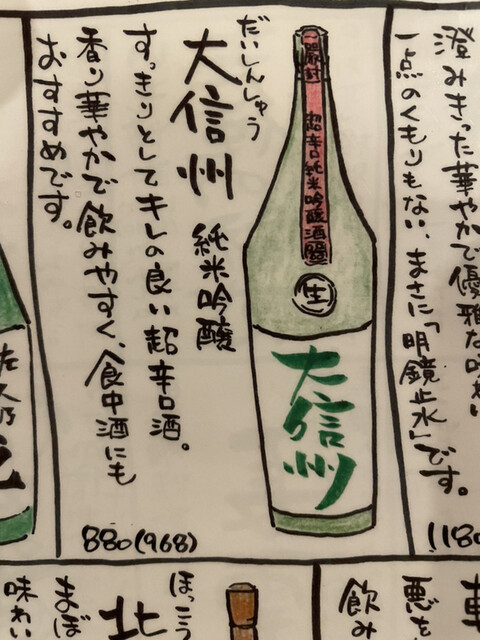 澄みきった華やかで優雅な味わい
一点のくもりもない、まさに「明鏡止水」です。
1180
だいしんしゅう
大信州 純米吟醸
すっきりとしてキレの良い超辛口酒。
香り華やかで飲みやすく、食中酒にも
おすすめです。
880(968)
開封
超辛口純米吟醸酒
生
大信州
飲み
北
まぼ
味わい